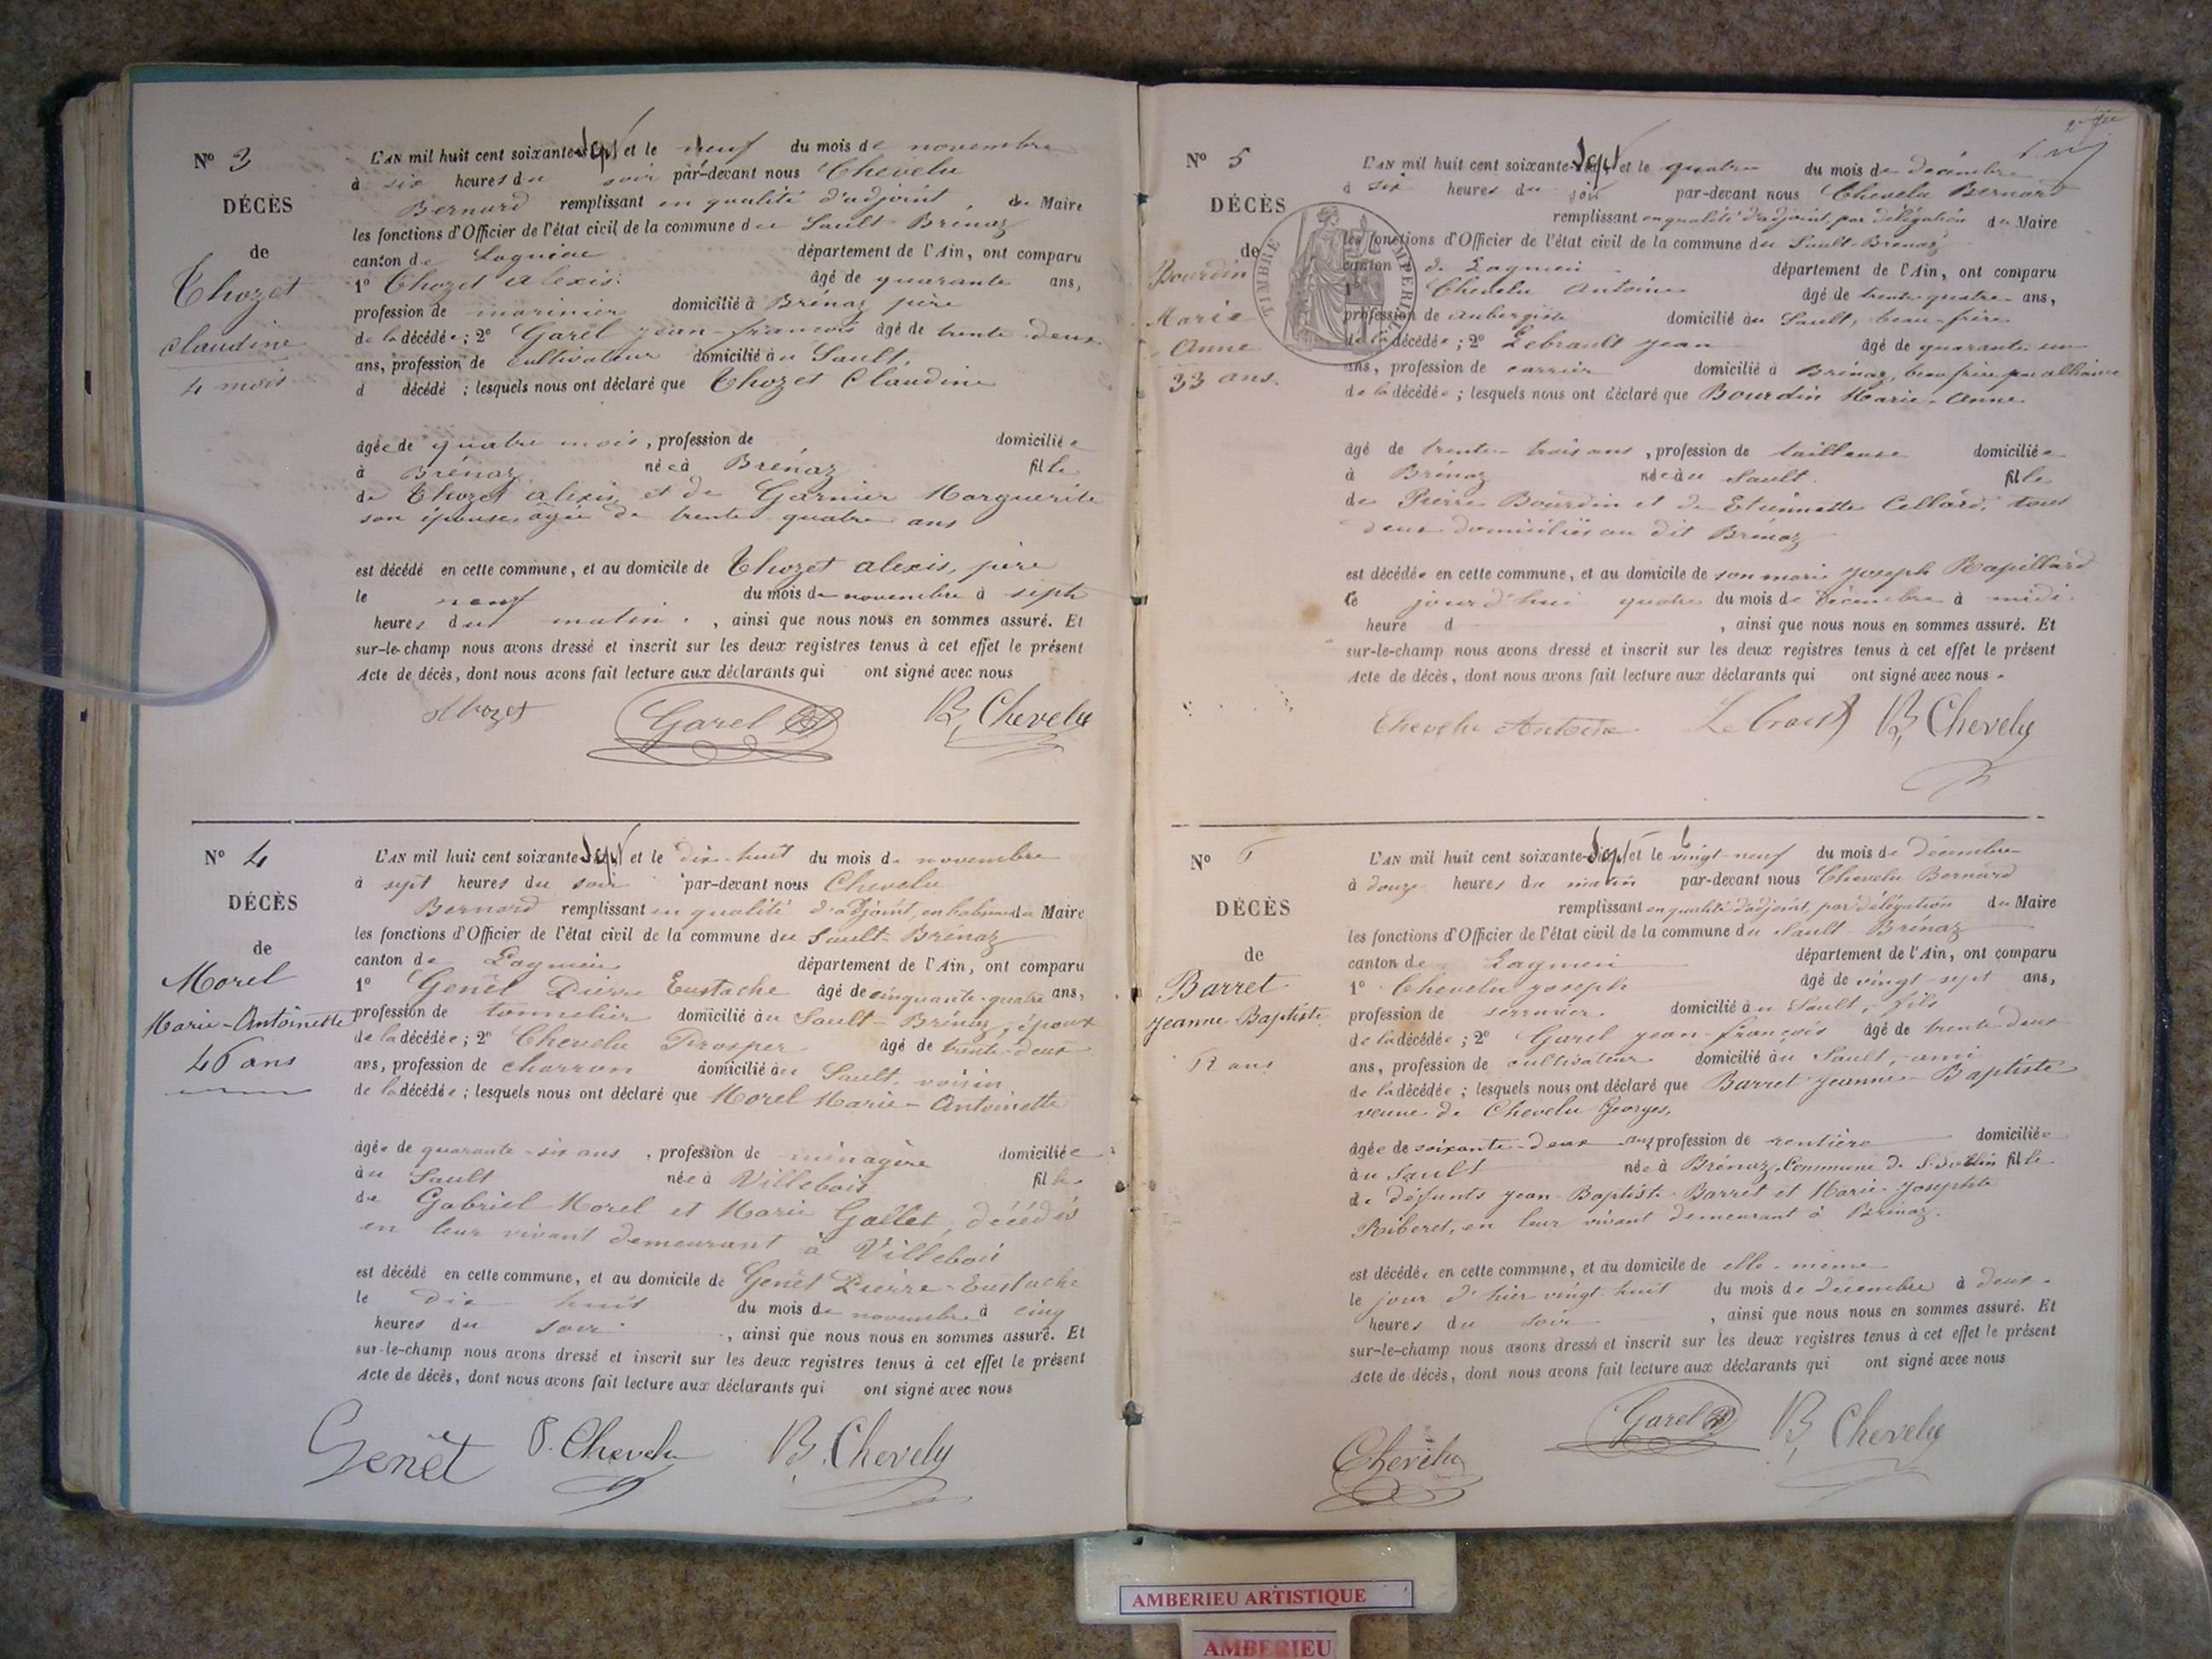 N° 3
DÉCÈS
de
Thozet
Claudine
4 mois
L'AN mil huit cent soixante-sept et le neuf du mois de novembre
à six heures du soir par-devant nous Chevelu
Bernard remplissant en qualité d'adjoint, du Maire
les fonctions d'Officier de l'état civil de la commune du Sault-Brénaz
canton de Lagnieu département de l'Ain, ont comparu
1° Thozet Alexis âgé de quarante ans,
profession de marinier domicilié à Brénaz père
de la décédée; 2° Garel jean-françois âgé de trente-deux
ans, profession de cultivateur domicilié au Sault,
d décédé ; lesquels nous ont déclaré que Thozet Claudine
âgée de quatre mois, profession de domiciliée
à Brénaz née à Brénaz fille
de Thozet alexis et de Garnier Marguerite
son épouse, âgée de trente-quatre ans
est décédé en cette commune, et au domicile de Thozet alexis, père
le neuf du mois de novembre à sept
heures du matin, ainsi que nous nous en sommes assuré. Et
sur-le-champ nous avons dressé et inscrit sur les deux registres tenus à cet effet le présent
Acte de décès, dont nous avons fait lecture aux déclarants qui ont signé avec nous
Thozet Garel B. Chevelu
N° 4
DÉCÈS
de
Morel
Marie-Antoinette
46 ans
L'AN mil huit cent soixante-sept et le dix-huit du mois de novembre
à sept heures du soir par-devant nous Chevelu
Bernard remplissant en qualité d'adjoint, du Maire
les fonctions d'Officier de l'état civil de la commune du Sault-Brénaz
canton de Lagnieu département de l'Ain, ont comparu
1° Genêt Pierre Eustache âgé de cinquante-quatre ans,
profession de tonnelier domicilié au Sault-Brénaz, époux
de la décédée; 2° Chevelu Prosper âgé de trente-deux
ans, profession de charron domicilié au Sault, voisin
de la décédée; lesquels nous ont déclaré que Morel Marie-Antoinette
âgée de quarante-six ans, profession de ménagère domiciliée
au Sault née à Villebois fille
de Gabriel Morel et Marie Gallet, décédés
en leur vivant demeurant à Villebois
est décédé en cette commune, et au domicile de Genêt Pierre-Eustache
le dix-huit du mois de novembre à cinq
heures du soir, ainsi que nous nous en sommes assuré. Et
sur-le-champ nous avons dressé et inscrit sur les deux registres tenus à cet effet le présent
Acte de décès, dont nous avons fait lecture aux déclarants qui ont signé avec nous
Genêt P. Chevelu B. Chevelu
N° 5
DÉCÈS
de
Bourdin
Marie
Anne
33 ans.
TIMBRE IMPERIAL
L'AN mil huit cent soixante-sept et le quatre du mois de décembre
à six heures du soir par-devant nous Chevelu Bernard
remplissant en qualité d'adjoint, par délégation du Maire
les fonctions d'Officier de l'état civil de la commune du Sault-Brénaz
canton de Lagnieu département de l'Ain, ont comparu
1° Chevelu Antoine âgé de trente-quatre ans,
profession de aubergiste domicilié au Sault, beau-frère
de la décédée; 2° Lebrault jean âgé de quarante-un
ans, profession de carrier domicilié à Brénaz, beau frère par alliance
de la décédée; lesquels nous ont déclaré que Bourdin Marie-Anne
âgé de trente-trois ans, profession de tailleuse domiciliée
à Brénaz née au Sault fille
de Pierre Bourdin et de Etiennette Cellard, tous
deux domiciliés au dit Brénaz
est décédée en cette commune, et au domicile de son mari Joseph Rapillard
le jourd'hui quatre du mois de décembre à midi
heure d , ainsi que nous nous en sommes assuré. Et
sur-le-champ nous avons dressé et inscrit sur les deux registres tenus à cet effet le présent
Acte de décès, dont nous avons fait lecture aux déclarants qui ont signé avec nous
Chevelu Antoine B. Chevelu
N° 6
DÉCÈS
de
Barret
Jeanne-Baptiste
ans
L'AN mil huit cent soixante-sept et le vingt-neuf du mois de décembre
à douze heures du matin par-devant nous Chevelu Bernard
remplissant en qualité d'adjoint, par délégation du Maire
les fonctions d'Officier de l'état civil de la commune du Sault-Brénaz
canton de Lagnieu département de l'Ain, ont comparu
1° Chevelu joseph âgé de vingt-sept ans,
profession de serrurier domicilié au Sault, fils
de la décédée; 2° Garel jean-françois âgé de trente-deux
ans, profession de cultivateur domicilié au Sault, ami
de la décédée; lesquels nous ont déclaré que Barret Jeanne-Baptiste
veuve de Chevelu Georges,
âgée de soixante-deux ans profession de rentière domiciliée
au Sault née à Brénaz, Commune de St Sorlin fille
de défunts jean-Baptiste Barret et Marie-Josephte
Riberet, en leur vivant demeurant à Brénaz.
est décédée en cette commune, et au domicile de elle-même
le jour d'hier vingt-huit du mois de décembre à deux
heures du soir, ainsi que nous nous en sommes assuré. Et
sur-le-champ nous avons dressé et inscrit sur les deux registres tenus à cet effet le présent
Acte de décès, dont nous avons fait lecture aux déclarants qui ont signé avec nous
Chevelu Garel B. Chevelu
AMBERIEU ARTISTIQUE
AMBERIEU